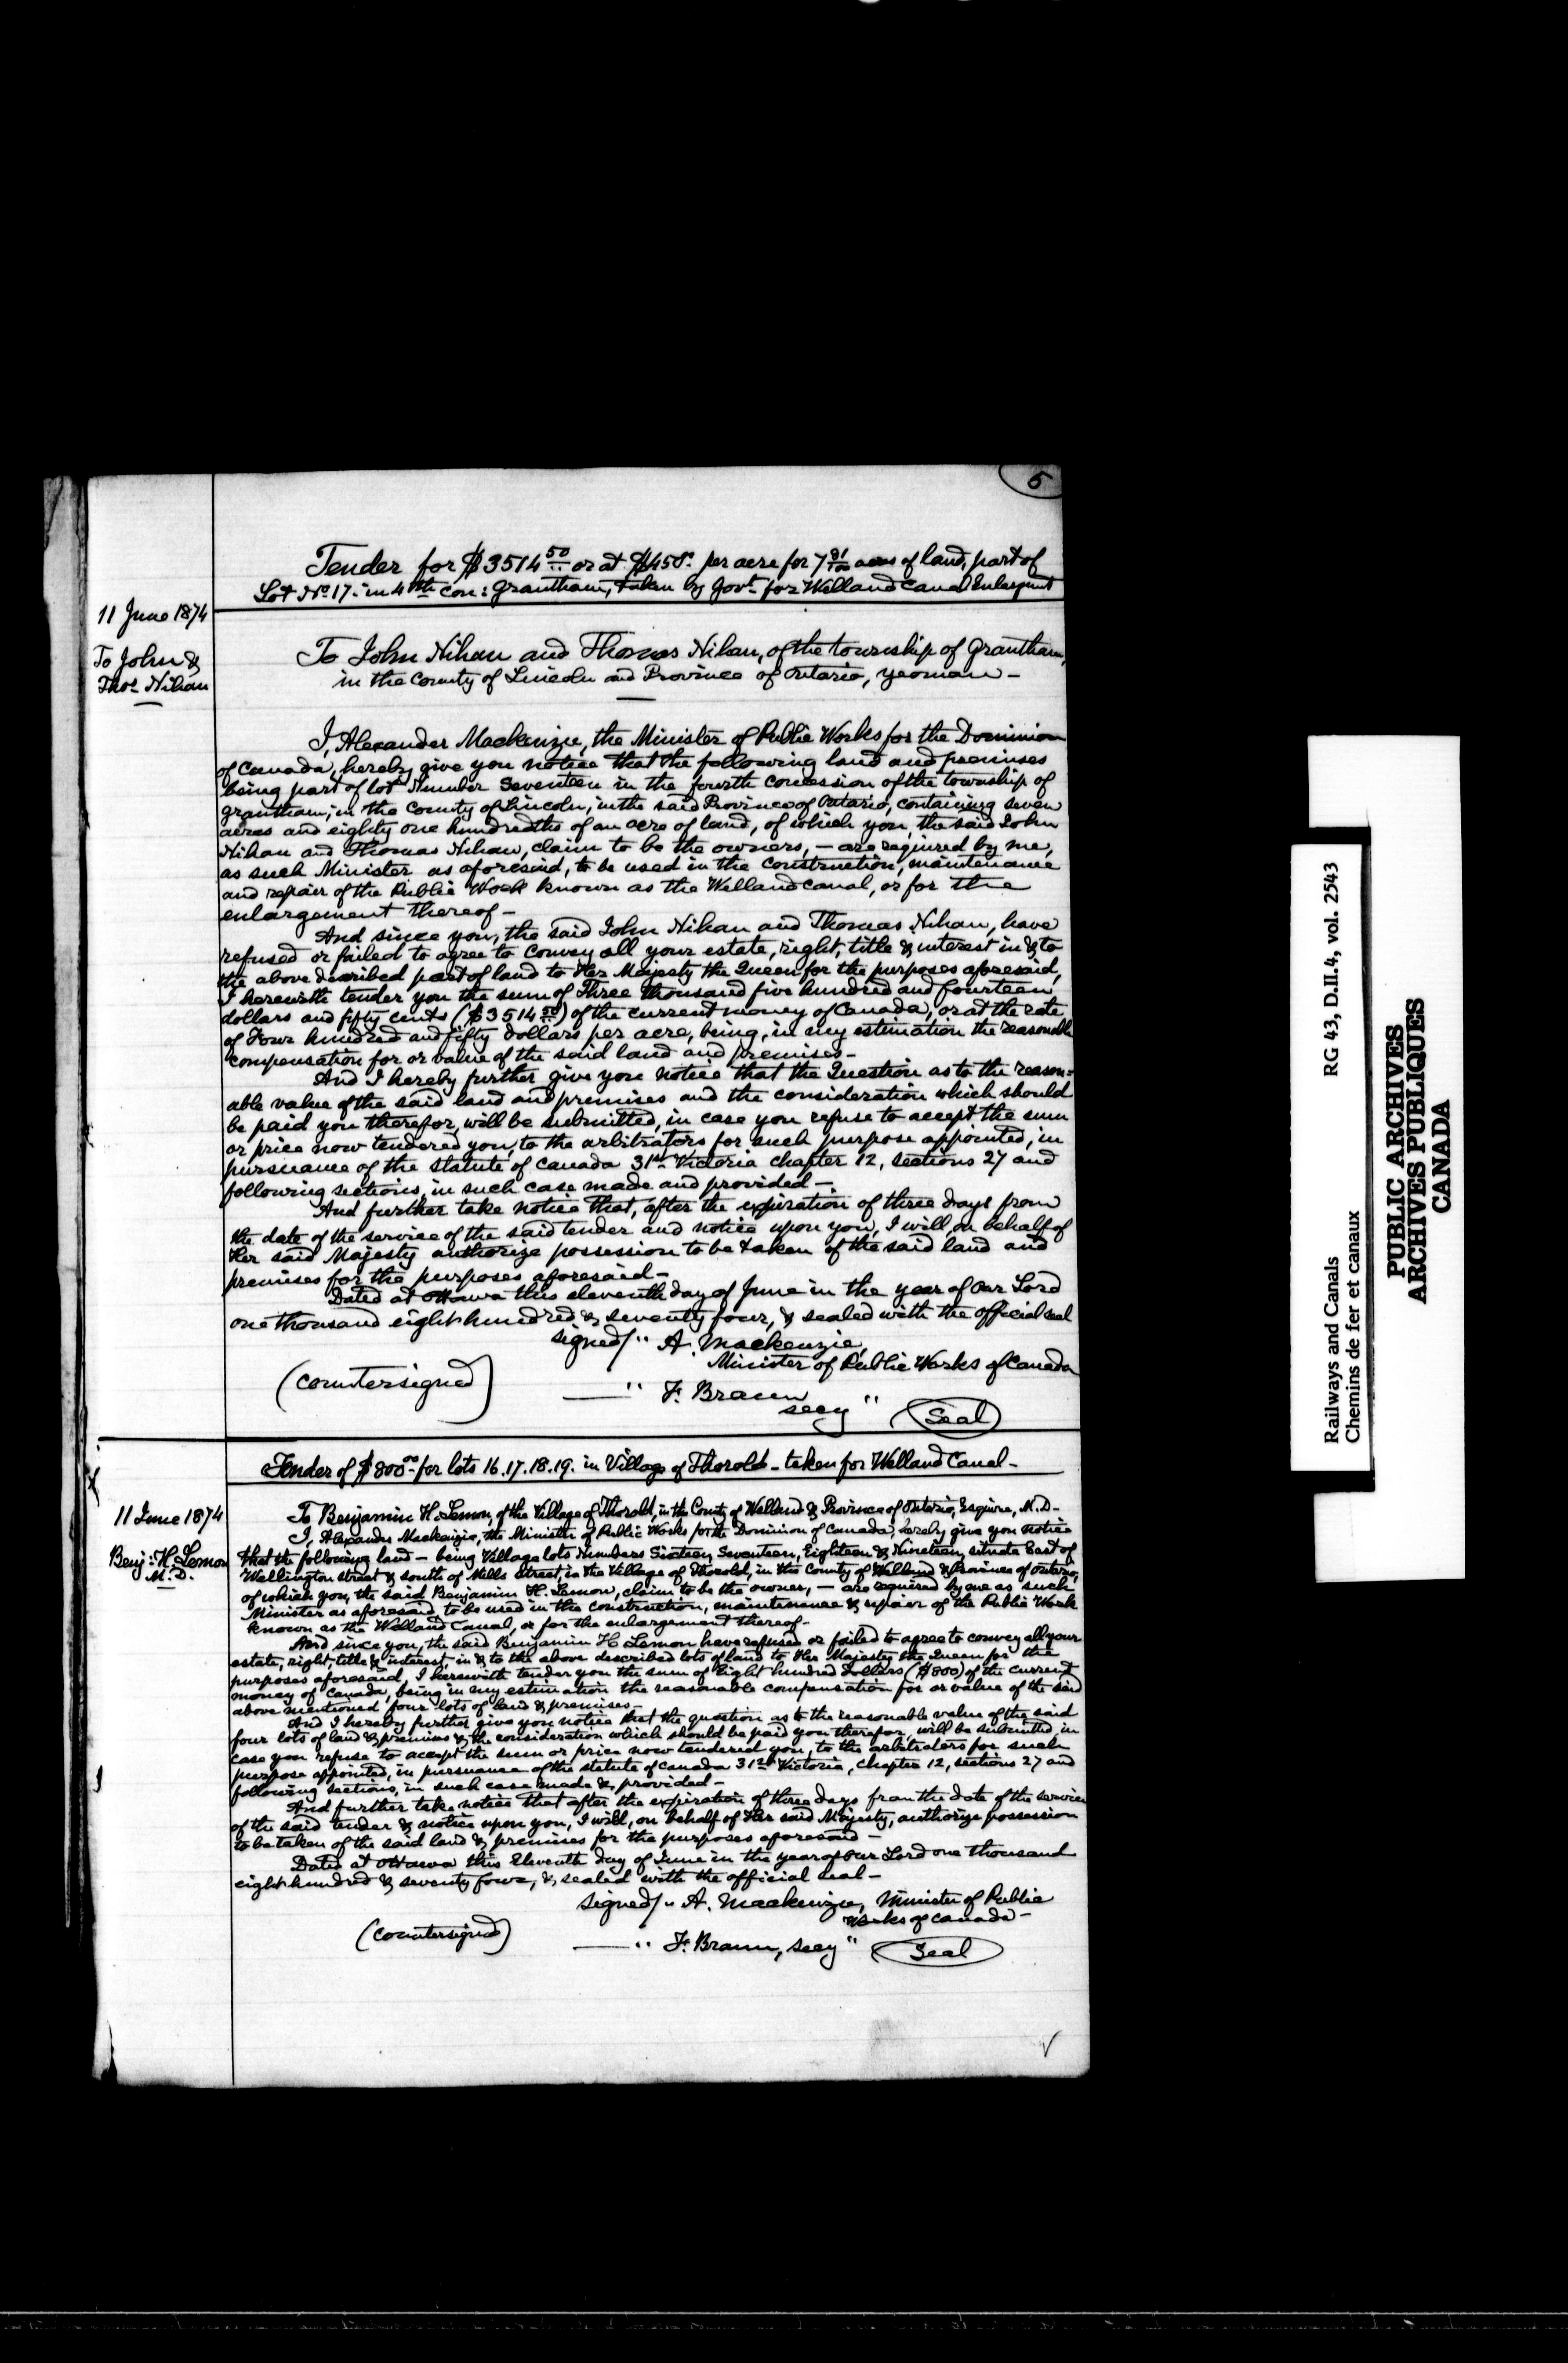 5
Tender for $3514 50/.. or at $450. per acre for 7 81/100 acres of land, part of
Lot No. 17. in 4th con: Grantham, taken by Govt. for Welland Canal Enlargmt
11 June 1874
To John &
Thos. Nihan
To John Nihan and Thomas Nihan, of the township of Grantham,
in the County of Lincoln and Province of Ontario, yeoman -
I, Alexander Mackenzie, the Minister of Public Works for the Dominion
of Canada, hereby give you notice that the following land and premises
being part of lot Number Seventeen in the fourth concession of the township of
Grantham, in the County of Lincoln, in the said Province of Ontario, containing seven
acres and eighty one hundredths of an acre of land, of which you, the said John
Nihan and Thomas Nihan, claim to be the owners, - are required by me,
as such Minister as aforesaid, to be used in the construction, maintenance
and repair of the Public Work known as the Welland Canal, or for the
enlargement thereof -
And since you, the said John Nihan and Thomas Nihan, have
refused or failed to agree to convey all your estate, right, title & interest in & to
the above described part of land to Her Majesty the Queen for the purposes aforesaid,
I herewith tender you the sum of Three thousand five hundred and fourteen
dollars and fifty cents ($3514 50/..) of the current money of Canada, or at the rate
of Four hundred and fifty dollars per acre, being, in my estimation the reasonable
compensation for or value of the said land and premises -
And I hereby further give you notice that the Question as to the reason=
able value of the said land and premises and the consideration which should
be paid you therefor, will be submitted, in case you refuse to accept the sum
or price now tendered you, to the arbitrators for such purpose appointed, in
pursuance of the statute of Canada 31st Victoria chapter 12, sections 27 and
following sections, in such case made and provided -
And further take notice that, after the expiration of three days from
the date of the service of the said tender and notice upon you, I will, on behalf of
Her said Majesty authorize possession to be taken of the said land and
premises for the purposes aforesaid -
Dated at Ottawa this eleventh day of June in the year of Our Lord
one thousand eight hundred & seventy four, & sealed with the official seal
signed/ " A. Mackenzie,
Minister of Public Works of Canada
(countersigned) — " F. Braun
secy " (Seal)
Tender of $800 00 for lots 16. 17. 18. 19. in Village of Thorold - taken for Welland Canal -
11 June 1874
Benj: H. Lemon
M. D.
To Benjamin H. Lemon, of the Village of Thorold, in the County of Welland & Province of Ontario, Esquire, M. D. -
I, Alexander Mackenzie, the Minister of Public Works for the Dominion of Canada, hereby give you notice
that the following land - being Village lots Numbers Sixteen, Seventeen, Eighteen & Nineteen, situate East of
Wellington Street & south of Mills Street, in the Village of Thorold, in the County of Welland & Province of Ontario,
of which you, the said Benjamin H. Lemon, claim to be the owner, - are required by me as such
Minister as aforesaid to be used in the construction, maintenance & repair of the Public Work
known as the Welland Canal, or for the enlargement thereof -
And since you, the said Benjamin H Lemon have refused or failed to agree to convey all your
estate, right, title & interest in & to the above described lots of land to Her Majesty the Queen for the
purposes aforesaid, I herewith tender you the sum of Eight hundred Dollars ($800) of the current
money of Canada, being in my estimation the reasonable compensation for or value of the said
above mentioned four lots of land & premises -
And I hereby further give you notice that the question as to the reasonable value of the said
four lots of land & premises & the consideration which should be paid you therefor, will be submitted, in
case you refuse to accept the sum or price now tendered you, to the arbitrators for such
purpose appointed, in pursuance of the statute of Canada 31st Victoria, Chapter 12, sections 27 and
following sections, in such case made & provided -
And further take notice that after the expiration of three days from the date of the service
of the said tender & notice upon you, I will, on behalf of Her said Majesty, authorize possession
to be taken of the said land & premises for the purposes aforesaid -
Dated at Ottawa this Eleventh day of June in the year of Our Lord one thousand
eight hundred & seventy four, & sealed with the official seal -
signed/ " A. Mackenzie, Minister of Public
Works of Canada -
(countersigned) — " F. Braun, secy " (Seal)
Railways and Canals RG 43, D.II.4, vol. 2543
Chemins de fer et canaux
PUBLIC ARCHIVES
ARCHIVES PUBLIQUES
CANADA